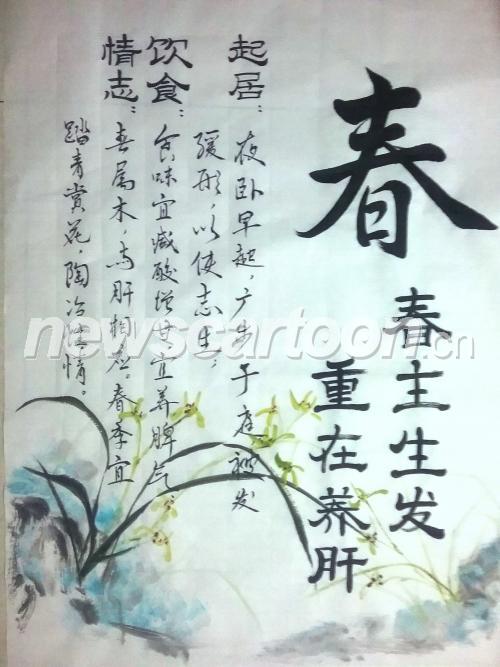 春
春主生发
重在养肝
起居：夜卧早起，广步于庭，被发
缓形，以使志生；
饮食：食味宜减酸增甘宜养脾气；
情志：春属木，与肝相应。春季宜
踏青赏花，陶冶性情。
newscartoon.cn